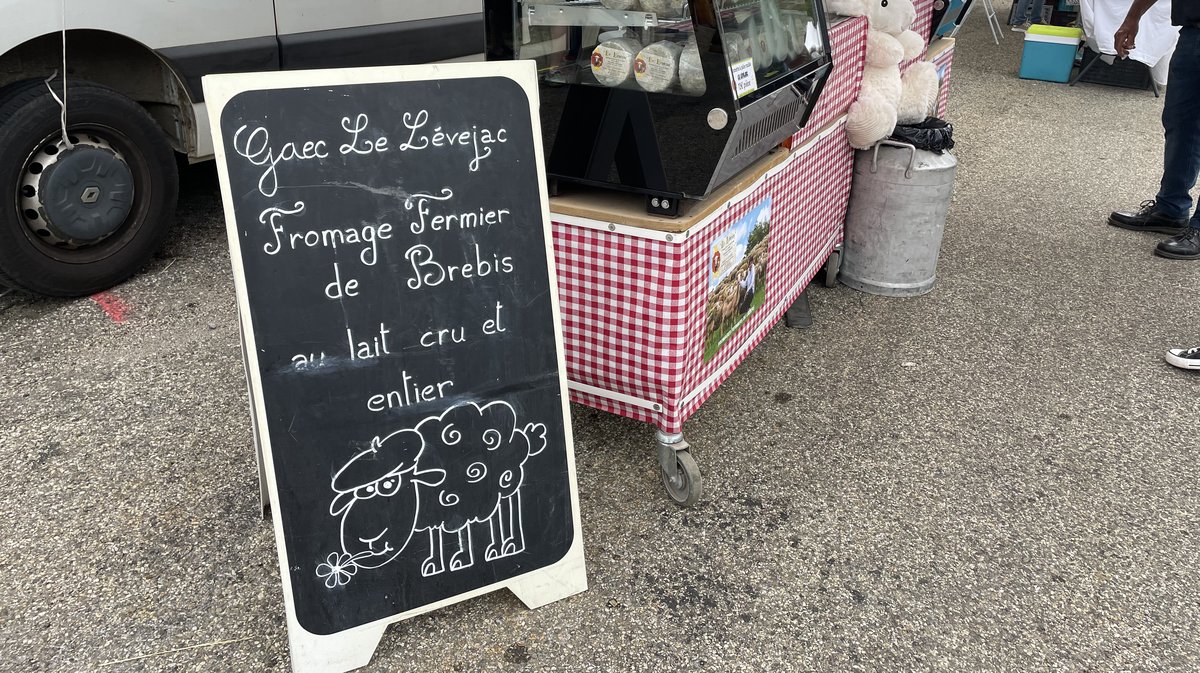 Gaec Le Lévejac
Fromage Fermier
de Brebis
au lait cru et
entier